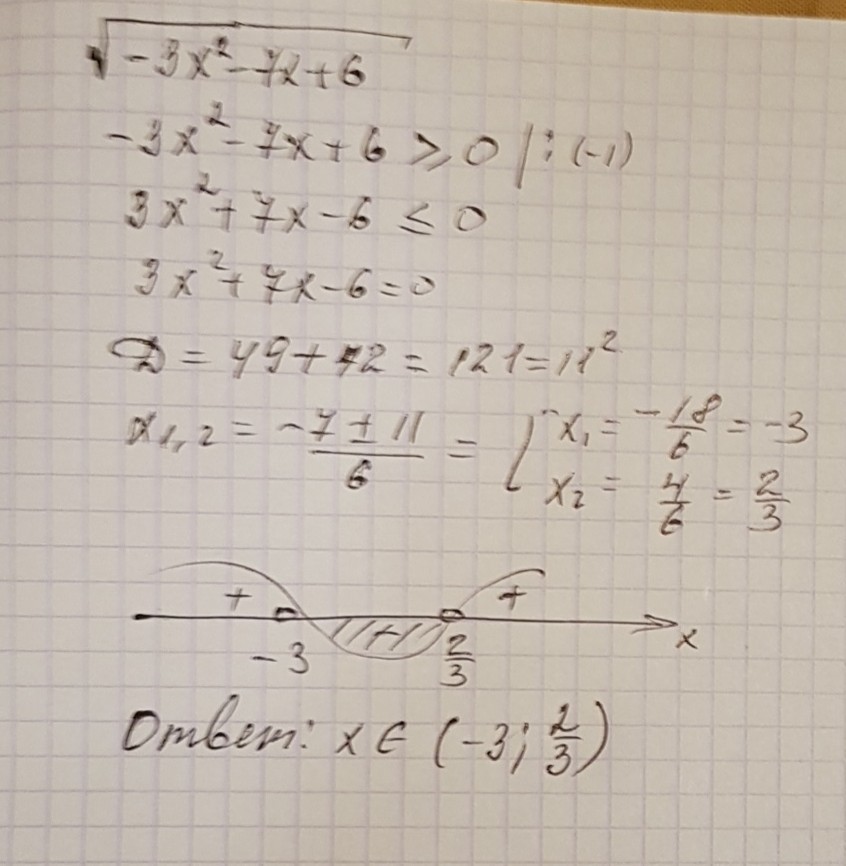 √(-3x²-7x+6)
-3x²-7x+6 ⩾ 0 |:(-1)
3x²+7x-6 ≤ 0
3x²+7x-6=0
D = 49+72 = 121=11²
x₁,₂ = (-7±11)/6 = [ x₁ = -18/6 = -3
x₂ = 4/6 = 2/3
+ +
-3 2/3 x
Ответ: x∈(-3; 2/3)